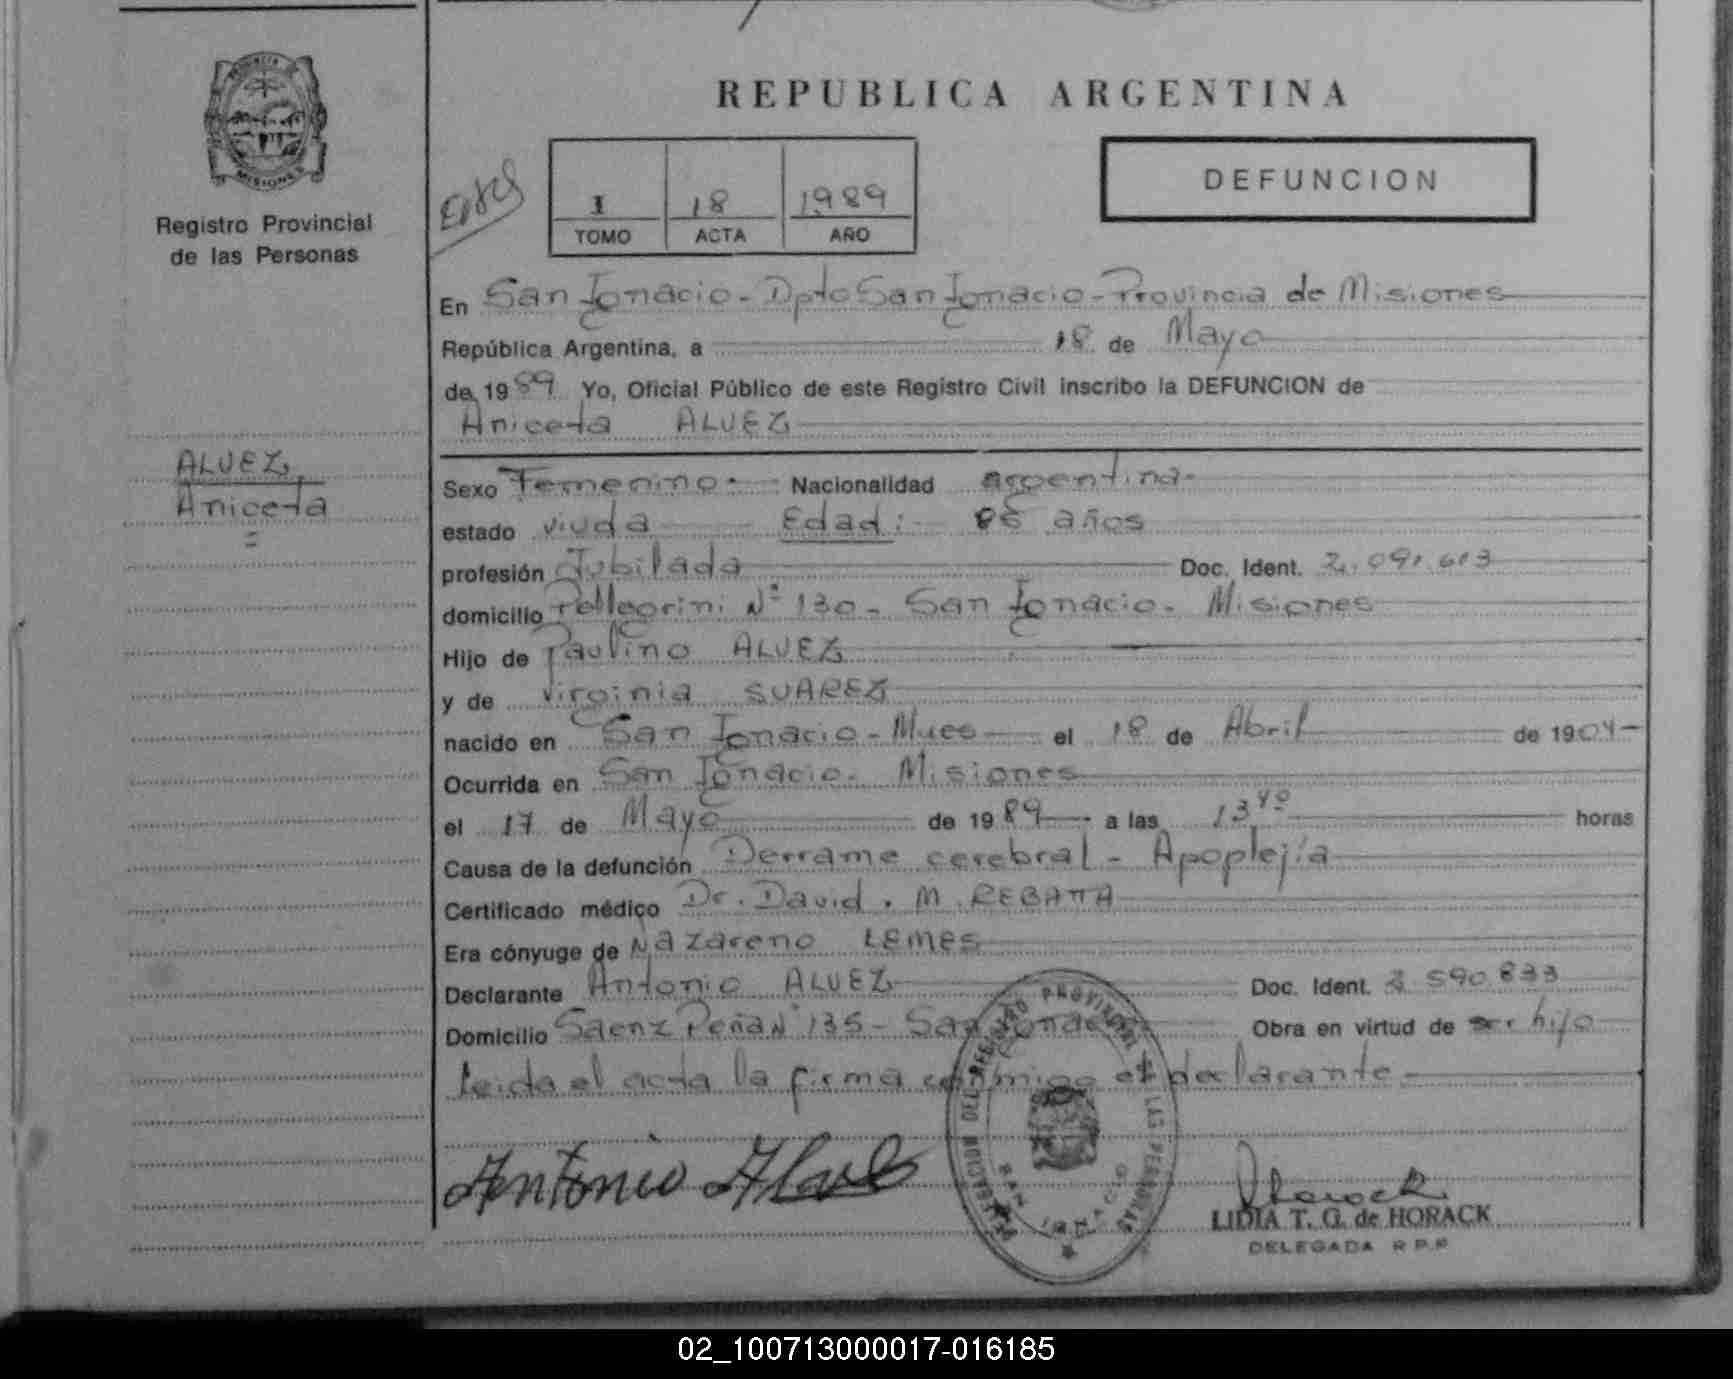 REPUBLICA ARGENTINA
PROVINCIA
MISIONES
Registro Provincial
de las Personas
I 18 1989
TOMO ACTA AÑO
DEFUNCION
En San Ignacio - Dpto San Ignacio - Provincia de Misiones
República Argentina, a 18 de Mayo
de 1989 Yo, Oficial Público de este Registro Civil inscribo la DEFUNCION de
Aniceta ALVEZ
ALVEZ,
Aniceta
Sexo Femenino. Nacionalidad argentina-
estado viuda Edad: 86 años
profesión Jubilada Doc. Ident. 2.091.613
domicilio Pellegrini N° 130 - San Ignacio - Misiones
Hijo de Paulino ALVEZ
y de Virginia SUAREZ
nacido en San Ignacio - Mnes el 18 de Abril de 1904-
Ocurrida en San Ignacio. Misiones
el 17 de Mayo de 1989 a las 13 40 horas
Causa de la defunción Derrame cerebral - Apoplejía
Certificado médico Dr. David . M. REBATTA
Era cónyuge de Nazareno LEMES
Declarante Antonio ALVEZ Doc. Ident. 590.833
Domicilio Saenz Peña N° 135 - San Ignacio Obra en virtud de hijo
Leida el acta la firma conmigo el declarante
DELEGACION DEL REGISTRO PROVINCIAL DE LAS PERSONAS
SAN IGNACIO
Antonio Alvez
Horack
LIDIA T. G. de HORACK
DELEGADA R P P
02_100713000017-016185